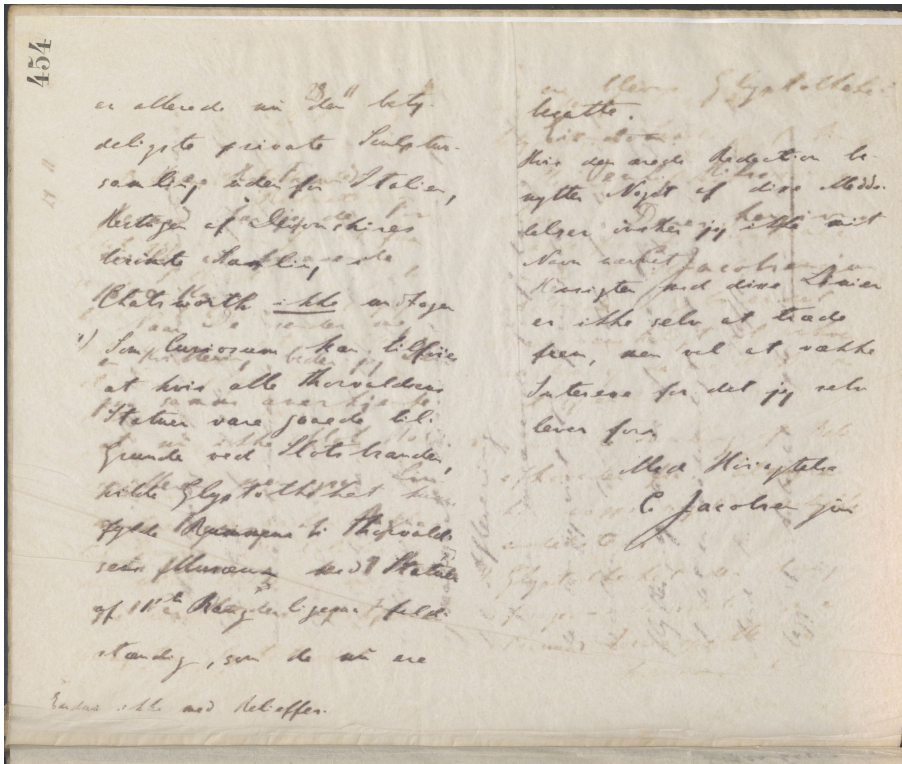 454
er allerede nu den bety-
deligste private Sculptur-
samling uden for Italien,
Hertugen af Devonshires
berømte Samling,
Chatsworth ikke undtagen
Som Curiosum kan tilføies
at hvis alle Thorvaldsens
Statuer vare gaaede til
Grunde ved Slotsbranden,
vilde Glyptotheket kunne
fylde Rummene i Thorvald-
sens Museum med Statuer
af Rang ligesaa fuld-
stændig, som de nu ere
Endnu ikke med Relieffer.
besatte.
Hvis den ærede Redaction be-
nytter Noget af disse Medde-
lelser ønsker jeg ikke mit
Navn nævnet
Hensigten med disse Linier
er ikke selv at træde
frem, men vel at vække
Interesse for det jeg selv
lever for.
Med Høiagtelse
C Jacobsen jun